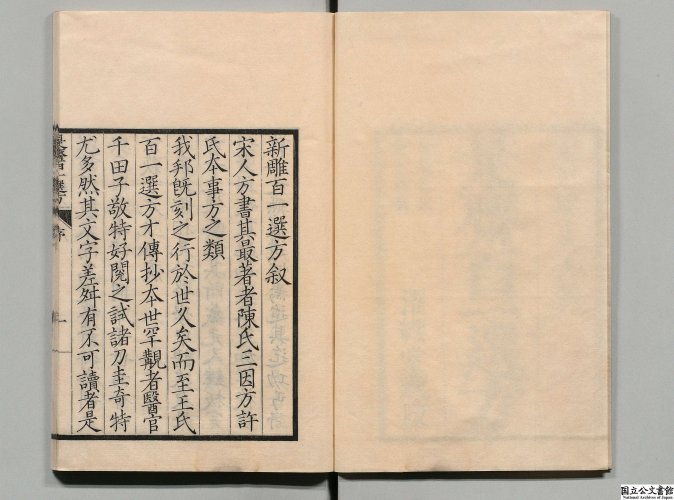 新雕百一選方叙
宋人方書其最著者陳氏三因方許
氏本事方之類
我邦既刻之行於世久矣而至王氏
百一選方才傳抄本世罕覯者醫官
千田子敬特好閱之試諸刀圭奇特
尤多然其文字差舛有不可讀者是
序
一
国立公文書館
National Archives of Japan